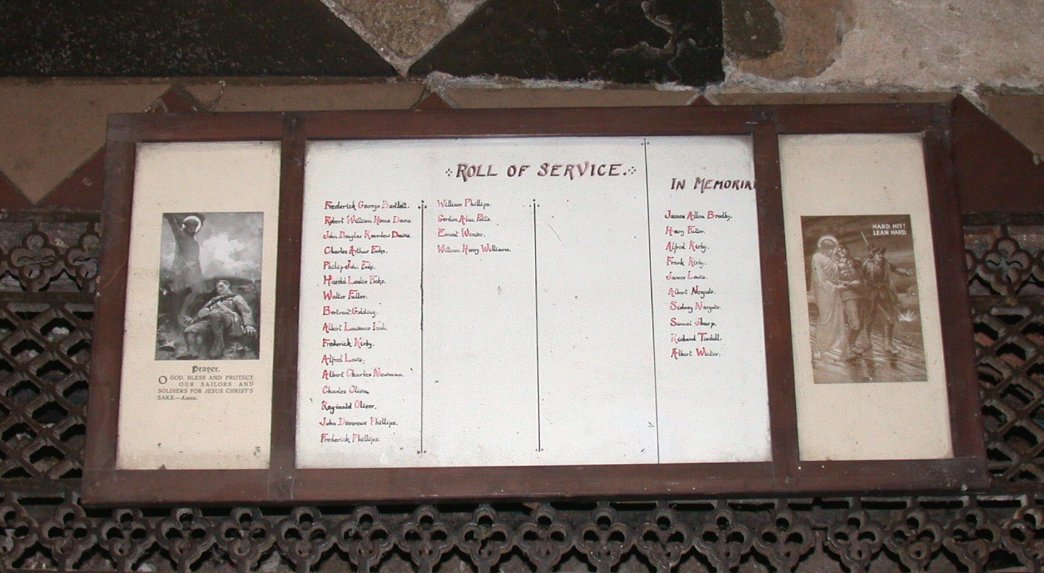 ROLL OF SERVICE.
Frederick George Bartlett.
Robert William Home Davis
John Douglas Kenelow Davis.
Charles Arthur
Philip John
Harold Leslie
Walter Fuller.
Bertram Golding.
Albert Lawrence
Frederick Kirby.
Alfred Lewis.
Albert Charles Newman.
Charles
Reginald Oliver.
John Devereux Phillips.
Frederick Phillips.
William Phillips.
Gordon Alan
Ernest
William Henry Williams.
IN MEMORIA
James Allen Bradby.
Harry Fuller.
Alfred Kirby.
Frank Kirby.
James Lewis.
Albert Norgate.
Sidney Norgate.
Samuel Sharp.
Richard Tindell.
Albert
Prayer.
O GOD, BLESS AND PROTECT
OUR SAILORS AND
SOLDIERS FOR JESUS CHRIST'S
SAKE.—Amen.
HARD HITT
LEAN HARD